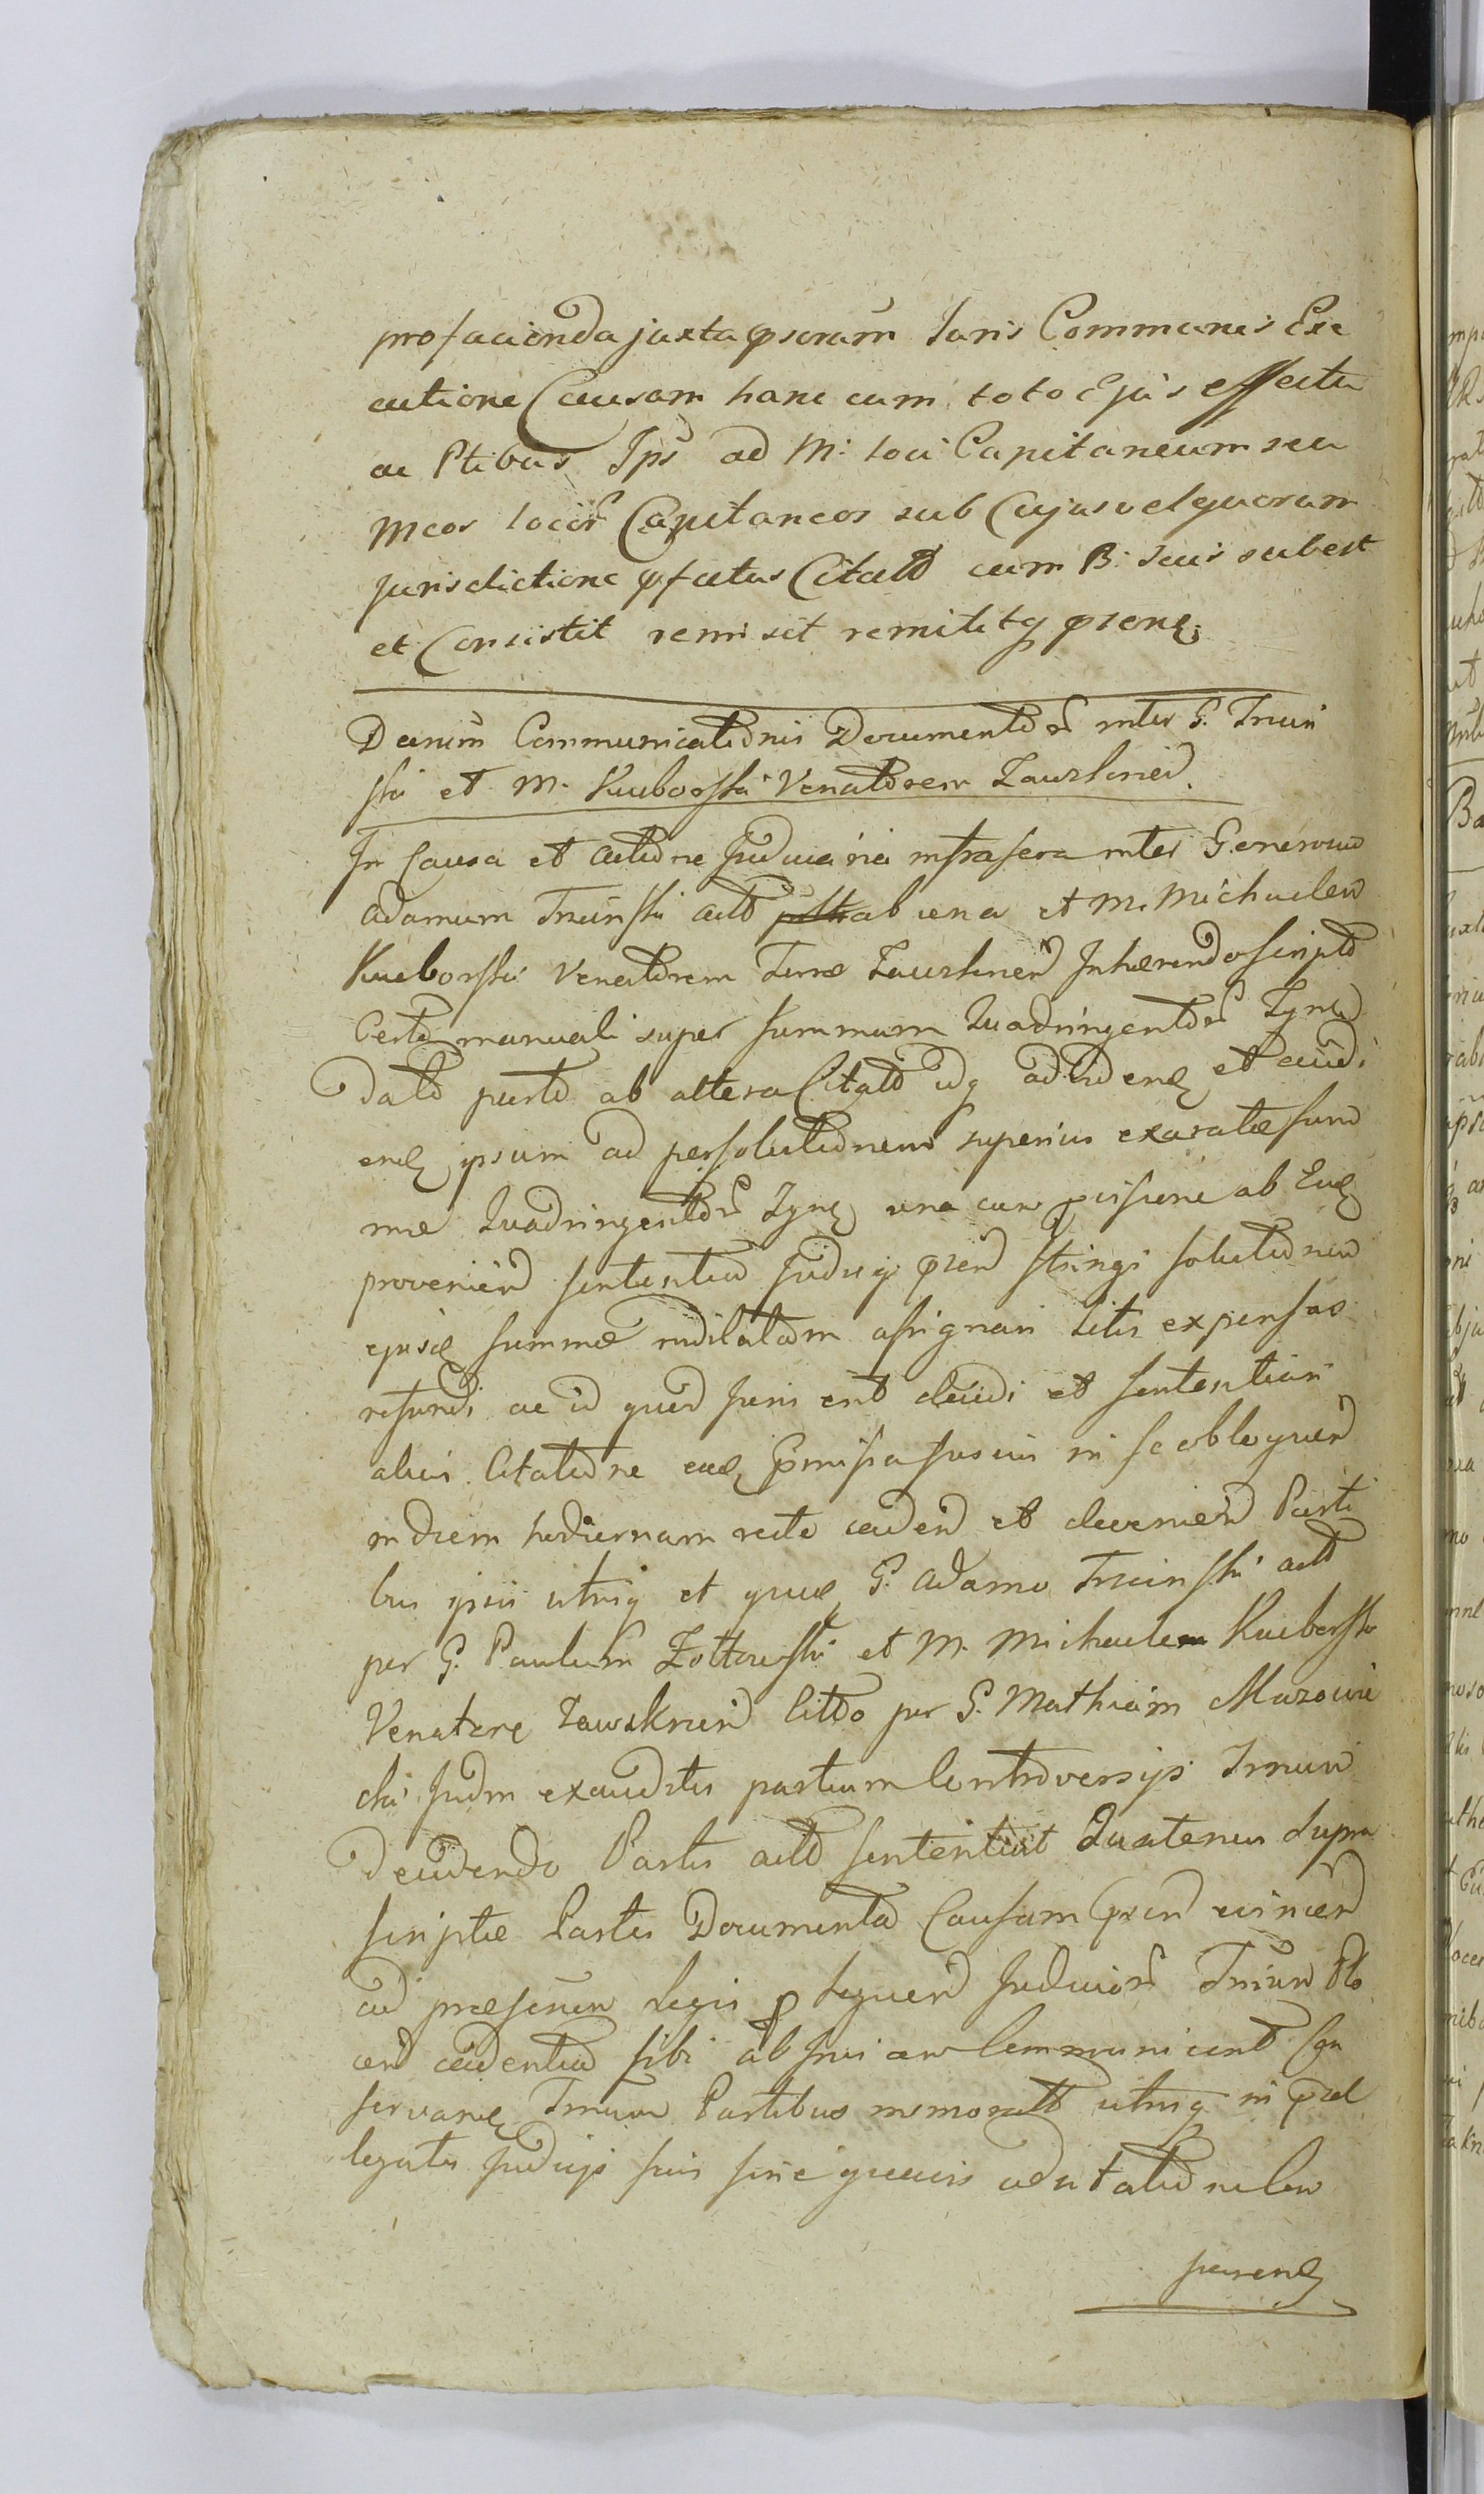 pro facienda juxta psorum Juris Communis Exe
cutione Causam hanc cum toto Ejus effectu
ac Ptibus Ips ad M: loci Capitaneum seu
Mcos locor Capitaneos sub Cujus vel quorum
jurisdictione pfatus Citatt cum B: suis subest
et Consistit remisit remittitq psenq
Decum Communicationis Documentor inter G. Trzcin
ski et M. Kuborski Venatorem Zawskrien
In Causa et actione Judiciaria infrascra inter Generosum
Adamum Trzcinski actt ab una et M. Michaelem
Kuborski Venatorem Terræ Zawskrien Inhærendo scripto
Certo manuali super summam Quadringentor Tynf
dato parte ab altera Citatt idq ad viden et audi
end ipsum ad persolutionem superius exaratæ sum
mæ Quadringentor Tynf una cum provisione ab Ead
provenien sententia Judicij psen stringi solutionem
ejusd summæ indilatam assignari Litis expensas
refundi ac id quod Juris erit decidi et sententiari
alias Citatione ead præmissa fusius in se obloquen
in diem hodiernam recte caden et devenien Parti
bus ipsis utrisq et quidem G. Adamo Trzcinski actt
per G. Paulum Zottowski et M. Michaele Kuborski
Venatore Zawskrien Citto per G. Mathiam Mazowie
cki Judm exauditis partium Controversijs Trmum
Decidendo Partis actt sententiat Quatenus supra
scriptæ Partes Documenta Causam psen concernen
ad præsentem Regis p sequen Judicior Trmum Plo
cen cadentium sibi ad invicem communicent Con
servand Trmum Partibus memoratt utrisq in præ
legatis Judicijs suis sine quavis adcitatione com
paren